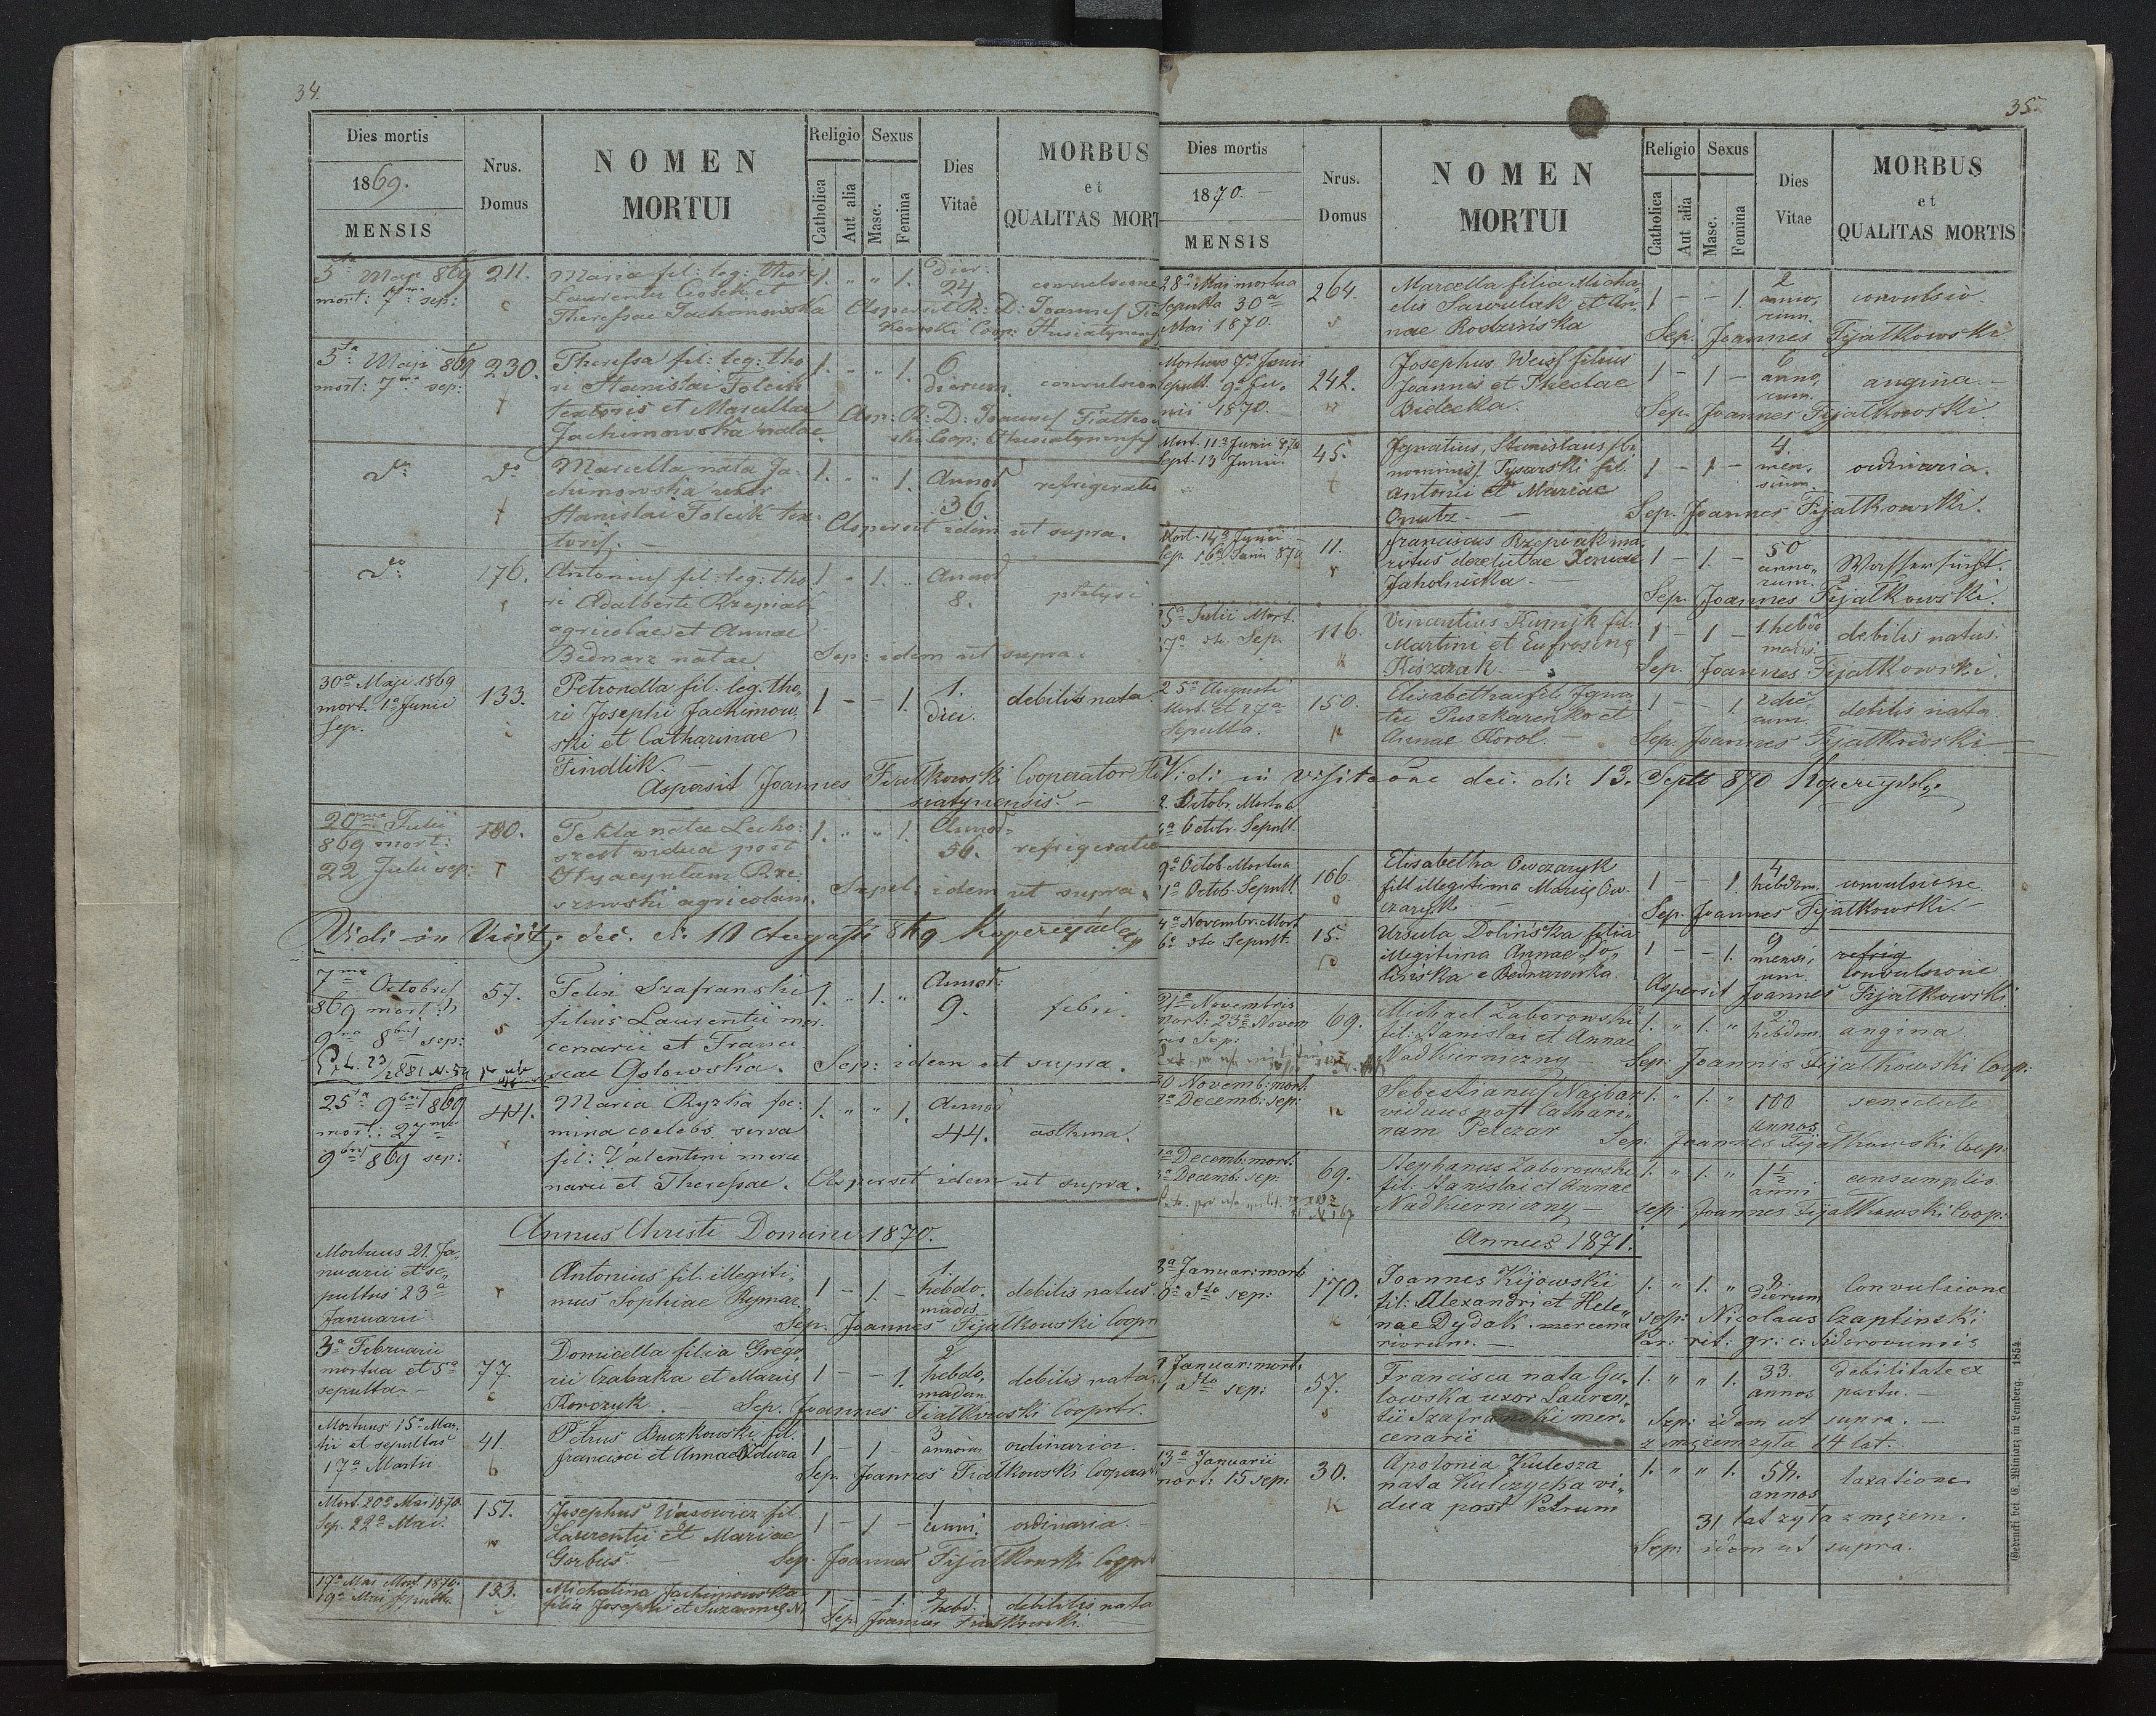 34.
Dies mortis
1869.
MENSIS
Nrus.
Domus
NOMEN
MORTUI
Religio
Catholica
Aut alia
Sexus
Masc.
Femina
Dies
Vitae
MORBUS
et
QUALITAS MORT
5ta Maji 869
mort: 7ma sep:
211.
Maria fil: leg: thori
Laurentii et
Theressae Jachimowska
1. " " 1.
Dier:
24.
convulsione
Aspersit R: D: Joannes Fiał
kowski Coop: Husiatynens
5ta Maji 869
mort: 7ma sep:
230.
Theressa fil: leg: tho
ri Stanislai
textoris et Marcellae
Jachimowska natae.
1. " " 1.
6
dierum.
convulsion
Asp: R: D: Joannes Fiałkow
ski Coop: Husiatynensis
do
do
Marcella nata Ja-
chimowska uxor
Stanislai tex-
toris. -
1. " " 1.
Annor
36
refrigeratio
Aspersit idem ut supra.
do
176.
Antonius fil: leg: tho
ri Adalberti Rzepiak
agricolae et Annae
Bednarz natae
1 " 1. "
Annor
8.
Sep: idem ut supra.
30a Maji 1869
mort. 1a Junii
Sep.
133.
Petronella fil. leg. tho-
ri Josephi Jachimow
ski et Catharinae
Findlik. -
1 - - 1.
1.
diei.
debilis nata
Aspersit Joannes Fiałkowski Cooperator Hu
siatynensis. -
20ma Julii
869 mort:
22 Julii sep:
Tekla nata Lecho-
szest vidua post
Hyacyntum Rze-
szowski agricolam.
1. " " 1.
Annor
56.
refrigeratio
Sepel: idem ut supra.
Vidi in Visit. dec. d. 10 Augusti 869
7ma Octobris
869 mort:
9na 8bris sep:
57.
Felix Szafranski
filius Laurentii mer-
cenarii et Franci
scae Gołowska.
1. " 1. "
Annor:
9.
febri.
Sep: idem ut supra.
25ta 9bris 869
mort: 27ma
9bris 869 sep:
44.
Maria Ryzka foe-
mina coelebs serva
fil: Valentini merce
narii et Theressae.
1. " " 1.
Annor
44.
asthma.
Aspersit idem ut supra.
Annus Christi Domini 1870.
Mortuus 21. Ja-
nuarii et se-
pultus 23a
Januarii
Antonius fil. illegiti-
mus Sophiae Rymar
1 - 1. -
1.
hebdo-
madis
debilis natus
Sep. Joannes Fijałkowski Coopr
3a Februarii
mortua et 5a
sepulta. -
77.
Domicella filia Grego-
rii Czabaka et Mariae
Korczyk.
1 - - 1.
2
hebdo-
madum
debilis nata
Sep. Joannes Fiałkowski Cooprtr.
Mortuus 15a Mar-
tii et sepultus
17a Martii
41.
Petrus Buczkowski fil.
Francisci et Annae
1 - 1 -
3
annorum
ordinaria.
Sep. Joannes Fiałkowski Cooperat
Mort. 20a Mai 1870.
Sep. 22a Mai.
151.
Josephus Wąsowicz fil.
Laurentii et Mariae
Gorbus. -
1 - 1 -
1
anni.
ordinaria. -
Sep. Joannes Fijałkowski
17a Mai Mort. 1870.
19a Mai Sepulta
133.
Michalina Jachimowska
filia Josephi et Suzannae N.
1 - - 1.
2
hebd.
debilis nata
Sep. Joannes Fiałkowski.
35.
Dies mortis
1870. -
MENSIS
Nrus.
Domus
NOMEN
MORTUI
Religio
Catholica
Aut alia
Sexus
Masc.
Femina
Dies
Vitae
MORBUS
et
QUALITAS MORTIS
28a Mai mortua
Sepulta 30a
Mai 1870.
264.
Marcella filia Micha-
elis Sawulak et An-
nae Rodzińska
1 - - 1.
2
anno-
rum.
convulsio.
Sep. Joannes Fijałkowski
Mortuus 7a Junii
Sepult. 9a Ju-
nii 1870. -
242.
Josephus Weiss filius
Joannis et Theclae
Bidecka.
1 - 1 -
6
anno-
rum.
angina. -
Sep. Joannes Fijałkowski
Mort. 11a Junii 870
Sept. 13 Junii
45.
Ignatius, Stanislaus (bi-
nominus) Pysarski fil.
Antonii et Mariae
1 - 1 -
4.
men-
sium.
ordinaria.
Sep. Joannes Fijałkowski.
Mort. 14a Junii
Sep. 16a Junii 870
11.
Franciscus Rzepiak ma-
ritus derelictae Xeniae
Jaholnicka -
1 - 1. -
50
anno-
rum.
Wassersucht.
Sep. Joannes Fijałkowski.
5a Julii Mort.
7a do Sep.
116.
Vincentius Kumik fil.
Martini et Eufrosinae
Kiszczak. -
1 - 1 -
1. hebdo
madis
debilis natus.
Sep. Joannes Fijałkowski.
25a Augusti
Mort. et 27a
Sepulta.
150.
Elisabetha fil. Igna-
tii Puszkarenko et
Annae Korol. -
1 - - 1.
2 die-
rum.
debilis nata.
Sep. Joannes Fijałkowski
Vidi in visitatione dec. die 13. Septb 870
2. Octobr. Mortua
4a Octbr. Sepult.
9a Octob. Mortua
1a Octob. Sepult.
166.
Elisabetha Owczaryk
fill illegitima Mariae Ow-
czaryk -
1 - - 1.
4
hebdom.
convulsione
Sep. Joannes Fijałkowski
4a Novembr. Mort
6a do Sepult.
15.
Ursula Dolińska filia
illegitima Annae Do-
lińska e Bednarowka.
1 - - 1.
9
mensi-
um
refrig
convulsione
Aspersit Joannes Fijałkowski
21a Novembris
mort: 23a Novem
ris Sep:
69.
Michael Zaborowski
fil: Stanislai et Annae
Nadkierniczny -
1. " 1. "
2
hebdom.
angina.
Sep: Joannis Fijałkowski Coop:
30 Novemb: mort.
2a Decemb: sep:
Sebestianus Najbar
viduus post Cathari-
nam Pelczar
1. " 1. "
100
annos
senectute
Sep: Joannes Fijałkowski Coop:
1a Decemb: mort.
3a Decemb: sep:
69.
Stephanus Zaborowski
fil: Stanislai et Annae
Nadkierniczny -
1. " 1. "
1½
anni
consumptio.
sep: Joannes Fijałkowski Coop:
Annus 1871.
3a Januar: mort
do sep:
170.
Joannes Kijowski
fil: Alexandri et Hele-
nae Dydak mercena
riorum. -
1. " 1. "
8
dierum
Convulsione
sep: Nicolaus Czaplinski
par: rit: gr: c: Siderovensis
Januar: mort.
do sep:
57.
Francisca nata Gu-
lowska uxor Lauren-
tii Szafranski mer-
cenarii
1. " " 1.
33.
annos
debilitate ex
partu. -
Sep: idem ut supra. -
z mężem żyła 14 lat.
13a Januarii
mort: 15 sep:
30.
Apolonia Kulesza
nata Kulczycka vi-
dua post Petrum
1. " " 1.
54.
annos
laxatione
31 lat żyła z mężem.
Sep: idem ut supra.
Gedruckt bei E. Winiarz in Lemberg. 1855.